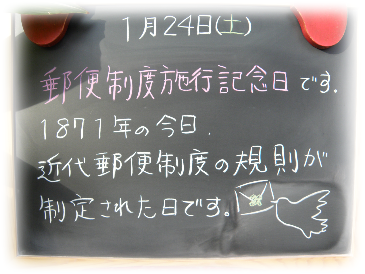 1月24日(土)
郵便制度施行記念日です.
1871年の今日.
近代郵便制度の規則が
制定された日です。